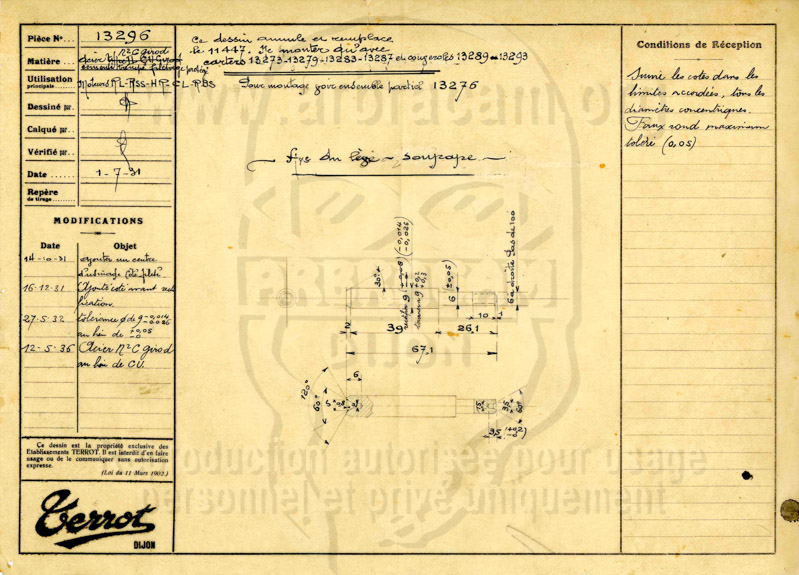 Pièce N° 13296
Matière
N2C Girod
Utilisation principale Moteurs RL-RSS-HP-CL-RBS
Dessiné par
Calqué par
Vérifié par
Date 1-7-31
Repère de tirage
MODIFICATIONS
Date Objet
14-10-31 ajouter un centre
d'usinage côté fileté
16-12-31 Ajouté cote avant rec-
tification.
27-5-32 tolérance ϕ de 9 -0,014 -0,026
au lieu de +0,05 -0
12-5-36 Acier N2C Girod
au lieu de CV.
Ce dessin est la propriété exclusive des
Etablissements TERROT. Il est interdit d'en faire
usage ou de le communiquer sans autorisation
expresse.
(Loi du 11 Mars 1902.)
Terrot
DIJON
Ce dessin annule et remplace
le 11447. Ne monter qu'avec
carters 13273-13279-13283-13287 et 13289 13293
Pour montage voir ensemble partiel 13276
Axe du levier soupape
30°
rectifié 9 (-0,014 -0,026)
9 +0,2 +0,3
6 (±0,05)
6 à droite pas de 100
2
39
26,1
10
1
67,1
6
120°
60°
5
3,5
60°
3,5 (+0,2 -0)
Conditions de Réception
Suivre les cotes dans les
limites accordées, tous les
diamètres concentriques.
Faux rond maximum
toléré (0,05)
ARBRACAM
DIJON
Reproduction autorisée pour usage
personnel et privé uniquement